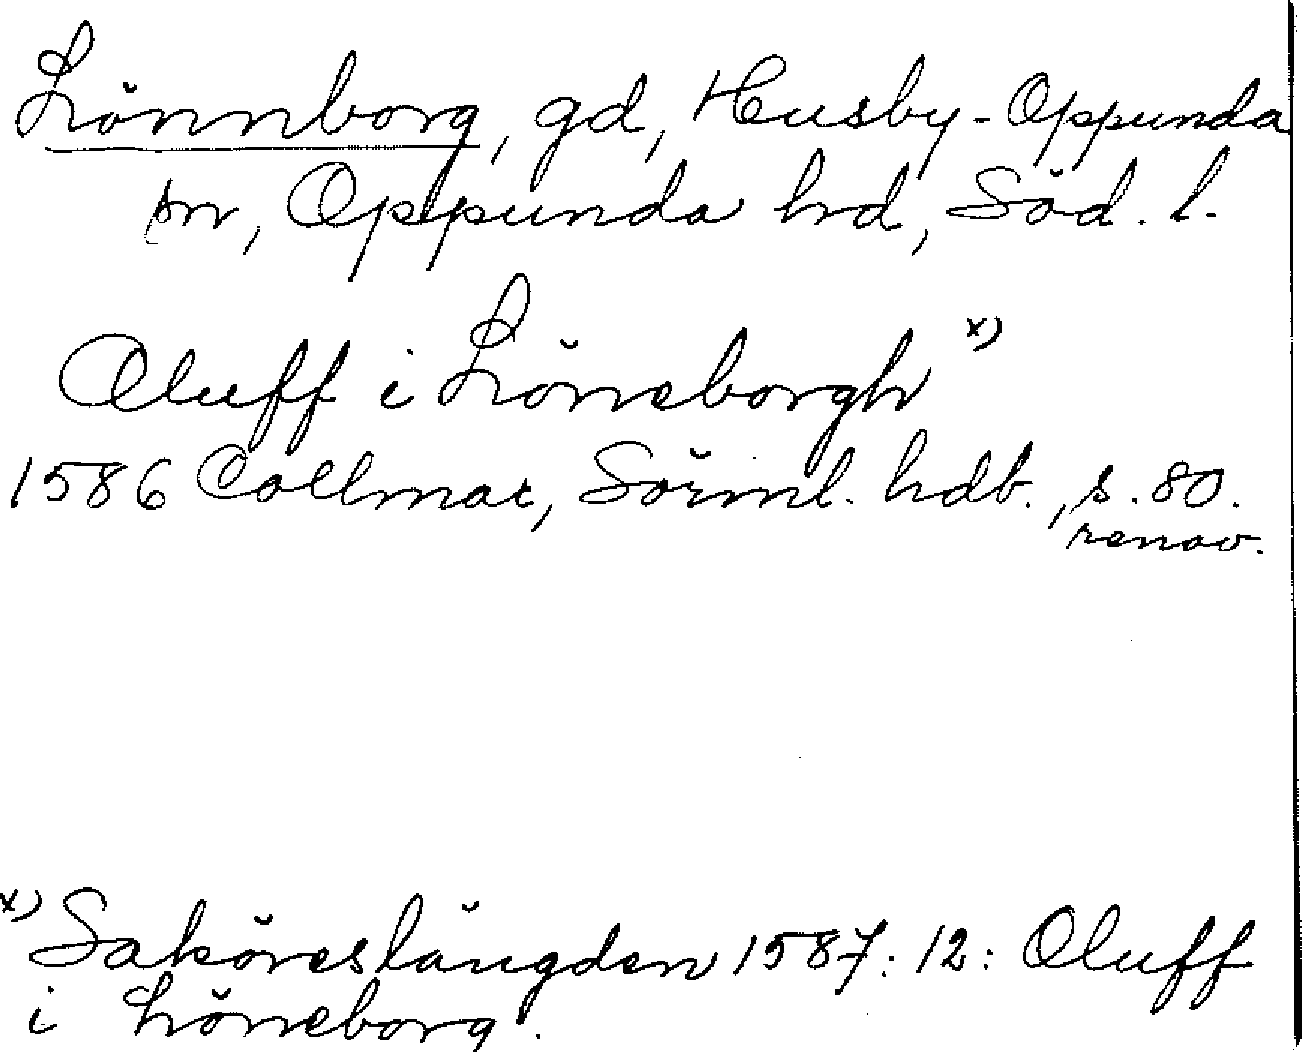 Lönnborg, gd, Husby-Oppunda
sn, Oppunda hd, Söd. l.
Oluff i Löneborgh x)
1586 Collmar, Sörml. hdb., s. 80.
renov.
x) Saköreslängden 1587: 12: Oluff
i Löneborg.